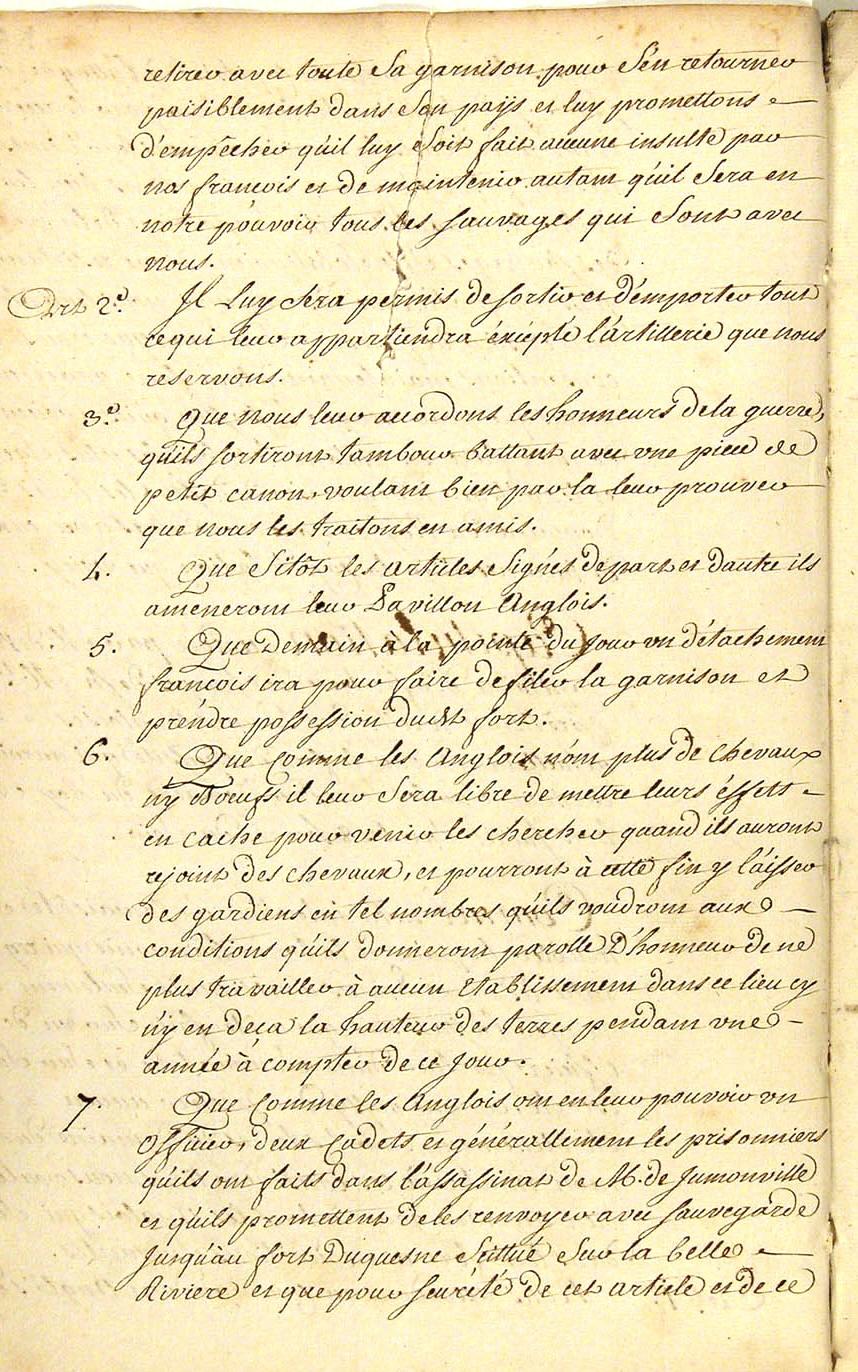 retirer avec toute Sa garnison pour S'en retourner
paisiblement dans Son païs et luy promettons
d'empêcher quil luy Soit fait aucune insulte par
nos francois et de maintenir autant quil Sera en
notre pouvoir tous les Sauvages qui Sont avec
nous.
Art 2e. Il Luy Sera permis de sortir et d'emporter tout
cequi leur appartiendra éxcépté l'artillerie que nous
reservons.
3e. Que nous leur accordons les honneurs dela guerre,
quils sortiront tambour battant avec vne piece de
petit canon, voulant bien par la leur prouver
que nous les traitons en amis.
4. Que Sitôt les articles Signés depart et dautre ils
ameneront leur Pavillon Anglois.
5. Que Demain à la pointe du Jour vn détachement
francois ira pour faire defiler la garnison et
prendre possession dudt fort.
6. Que Comme les Anglois n'ont plus de chevaux
ny Boeufs il leur Sera libre de mettre leurs éffets
en cache pour venir les chercher quand ils auront
rejoint des chevaux, et pourront à cette fin y laisser
des gardiens en tel nombres quils voudront aux
conditions quils donneront parolle D'honneur de ne
plus travailler à aucun Etablissement dans ce lieu cy
n'y en deca la hauteur des terres pendant vne
année à compter de ce Jour.
7. Que Comme les Anglois ont en leur pouvoir vn
Officier, deux Cadets, et générallement les prisonniers
quils ont faits dans l'assassinat de M. de Jumonville
et quils promettent deles renvoyer avec Sauvegarde
Jusqu'au fort Duquesne Scittué Sur la belle
Riviere et que pour seureté de cet article et de ce